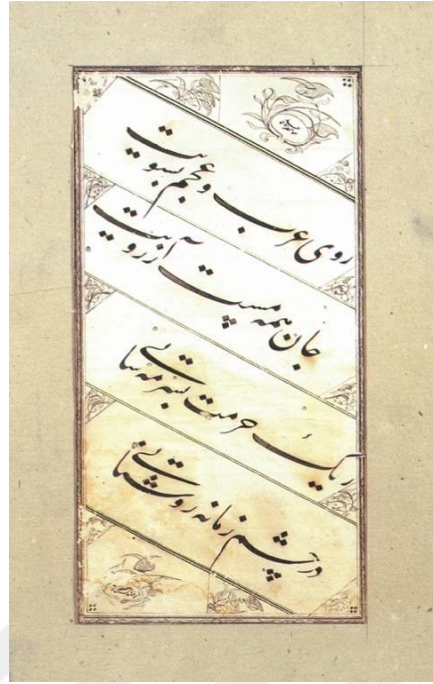 روی عرب و عجم بسویت
جان همه مست آرزویت
ریک حرمت بسرمه سائی
در چشم زمانه روشنائی